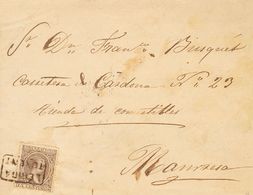 Sr. Dn. Franco. Brisquet
Carretera de Cardona No. 23
Tienda de comestibles
Manresa